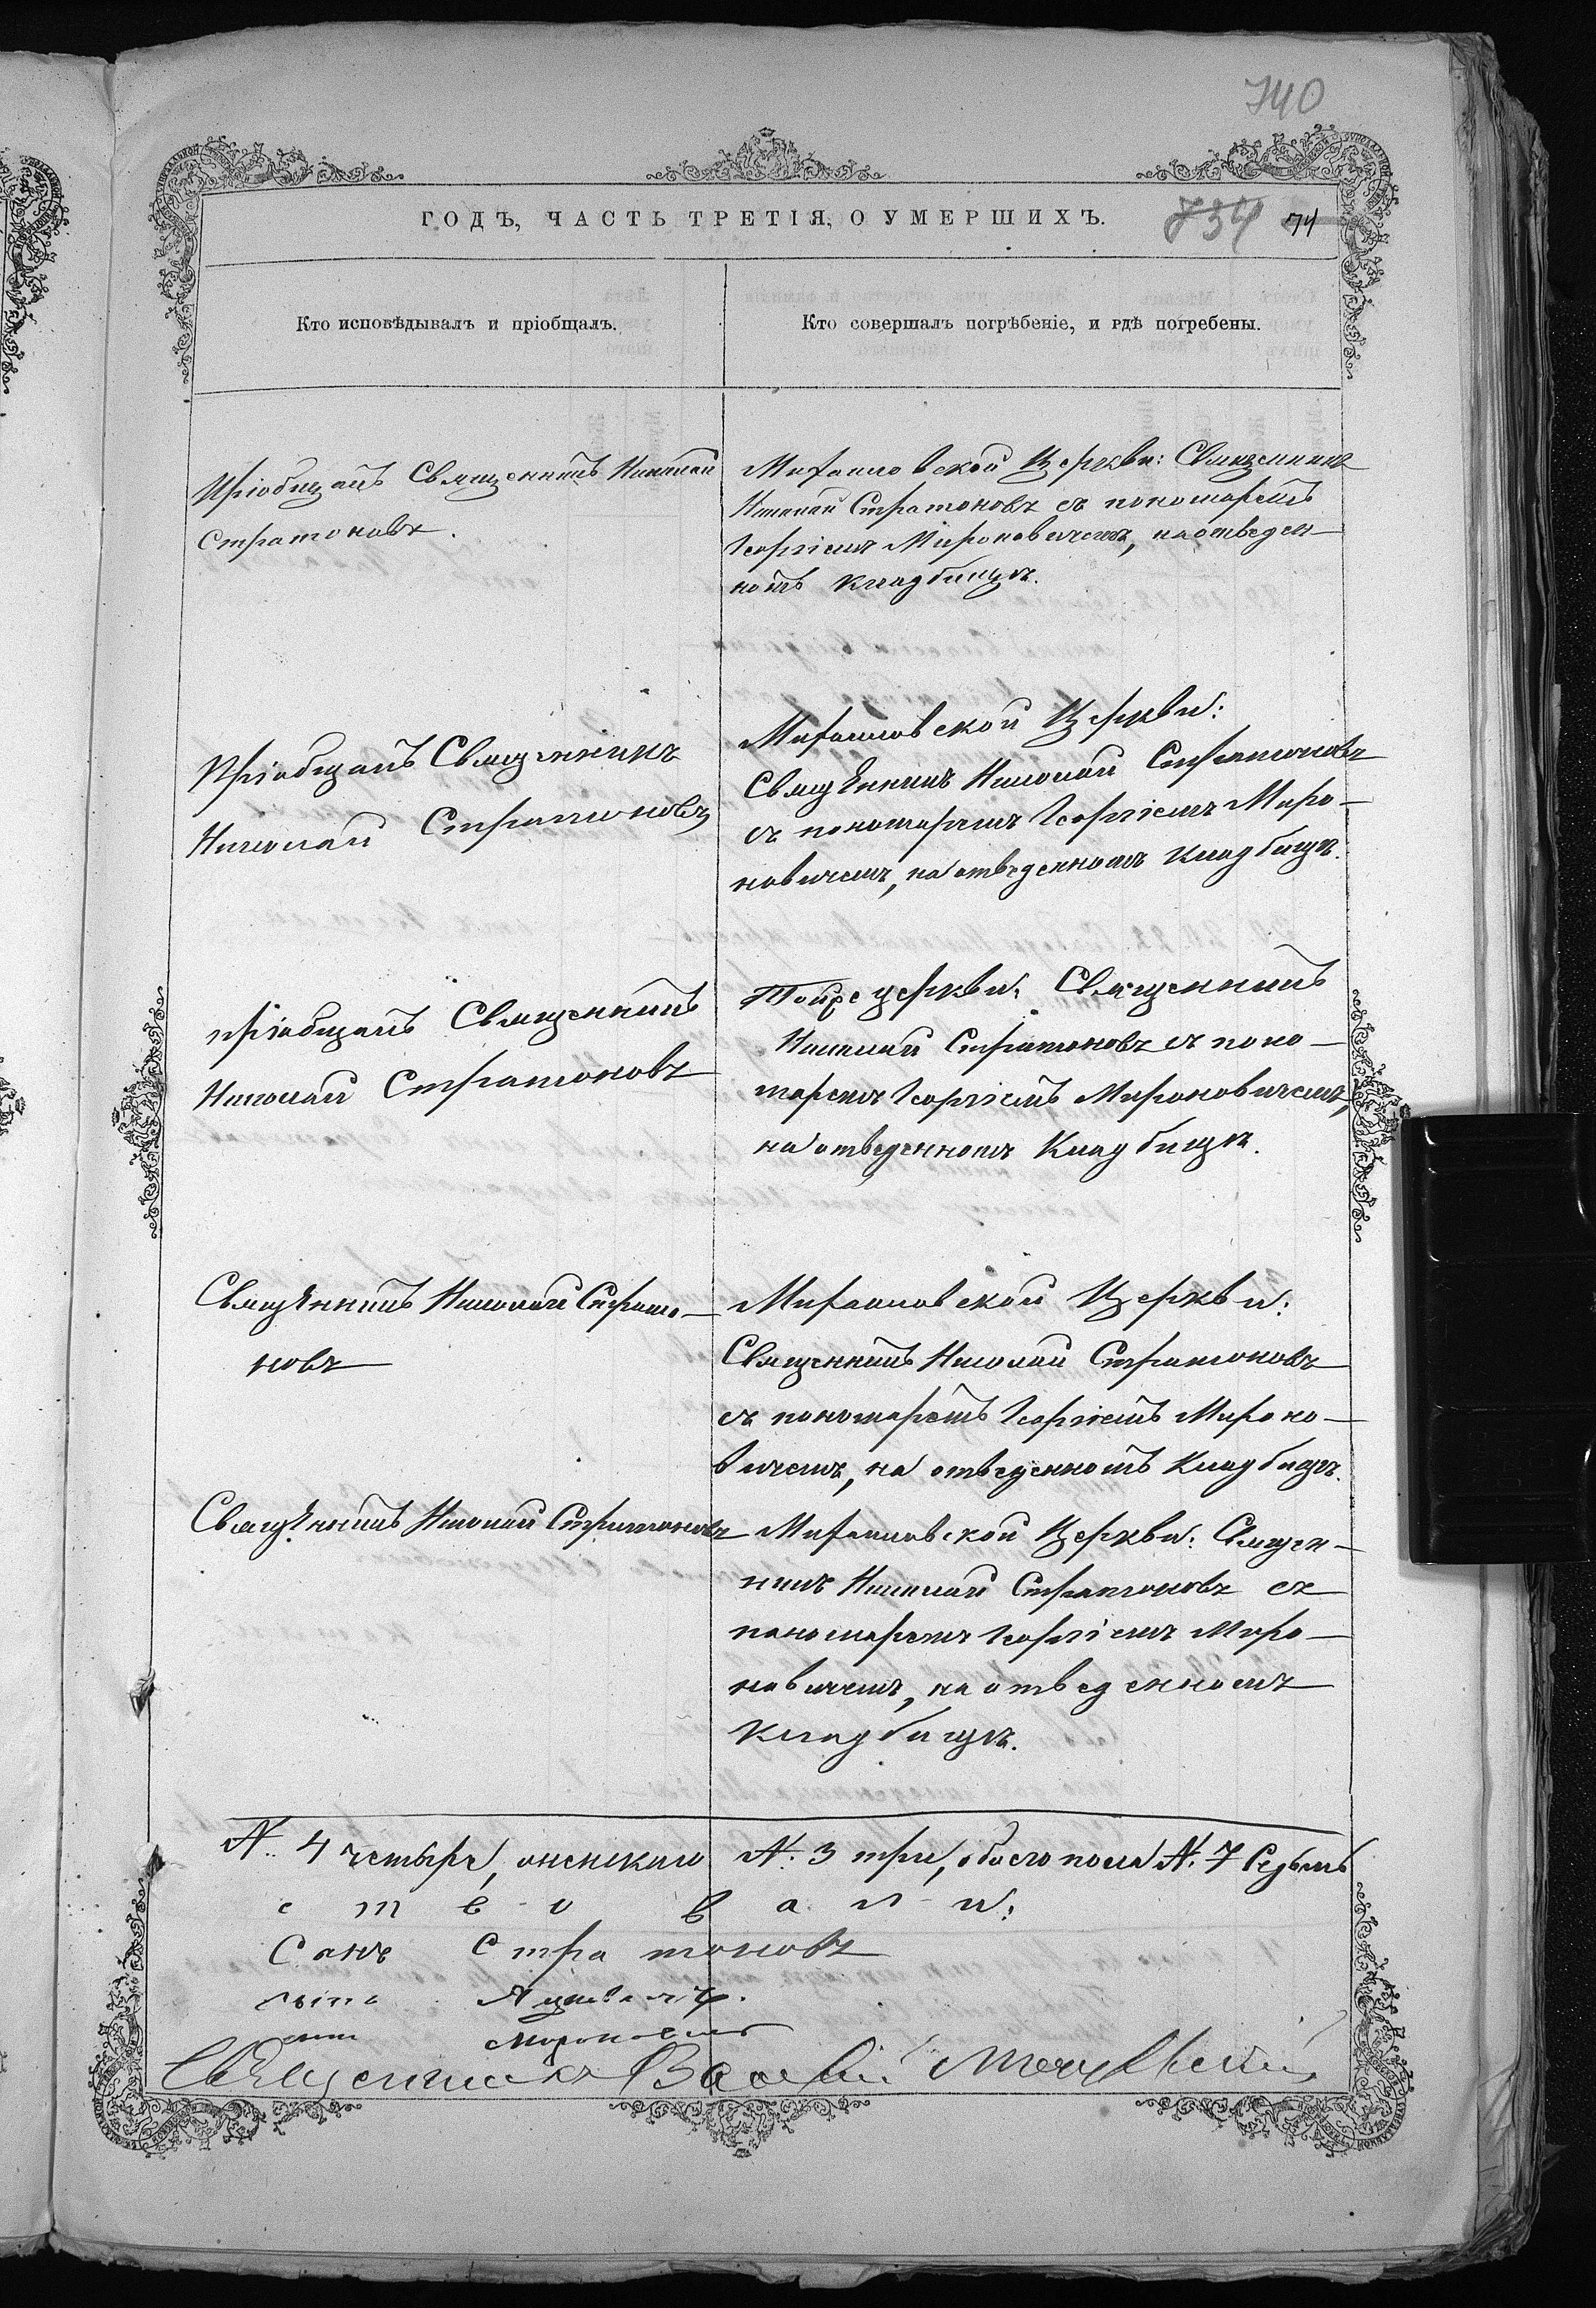 740
ГОДЪ, ЧАСТЬ ТРЕТІЯ, О УМЕРШИХЪ.
734 74
Кто исповѣдывалъ и пріобщалъ.
Кто совершалъ погрѣбеніе, и гдѣ погребены.
Пріобщалъ Священникъ Николай
Стратоновъ.
Михайловской Церкви: Священникъ
Николай Стратоновъ съ пономаремъ
Георгіемъ Мироновичемъ, на отведен-
номъ кладбищѣ.
Пріобщалъ Священникъ
Николай Стратоновъ
Михайловской Церкви:
Священникъ Николай Стратоновъ
съ пономаремъ Георгіемъ Миро-
новичемъ, на отведенномъ кладбищѣ.
Пріобщалъ Священникъ
Николай Стратоновъ
Тойже церкви, Священникъ
Николай Стратоновъ съ поно-
маремъ Георгіемъ Мироновичемъ,
на отведенномъ Кладбищѣ.
Священникъ Николай Страто-
новъ
Михайловской Церкви:
Священникъ Николай Стратоновъ
съ пономаремъ Георгіемъ Мироно-
вичемъ, на отведенномъ Кладбищѣ.
Священникъ Николай Стратоновъ
Михайловской Церкви: Священ-
никъ Николай Стратоновъ съ
пономаремъ Георгіемъ Миро-
новичемъ, на отведенномъ
Кладбищѣ.
N. 4 четыре, женскаго N. 3 три, обоего пола N. 7 Седьмь
с т в о в а л и:
Стратоновъ
Мироновичъ
Священникъ